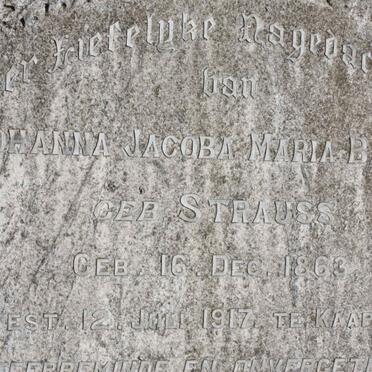 er Liefelyke Nagedac
van
OHANNA JACOBA MARIA B
GEB STRAUSS
GEB. 16. DEC. 1863
EST. 12. JULI 1917. TE KAAP
EN ONVERGET